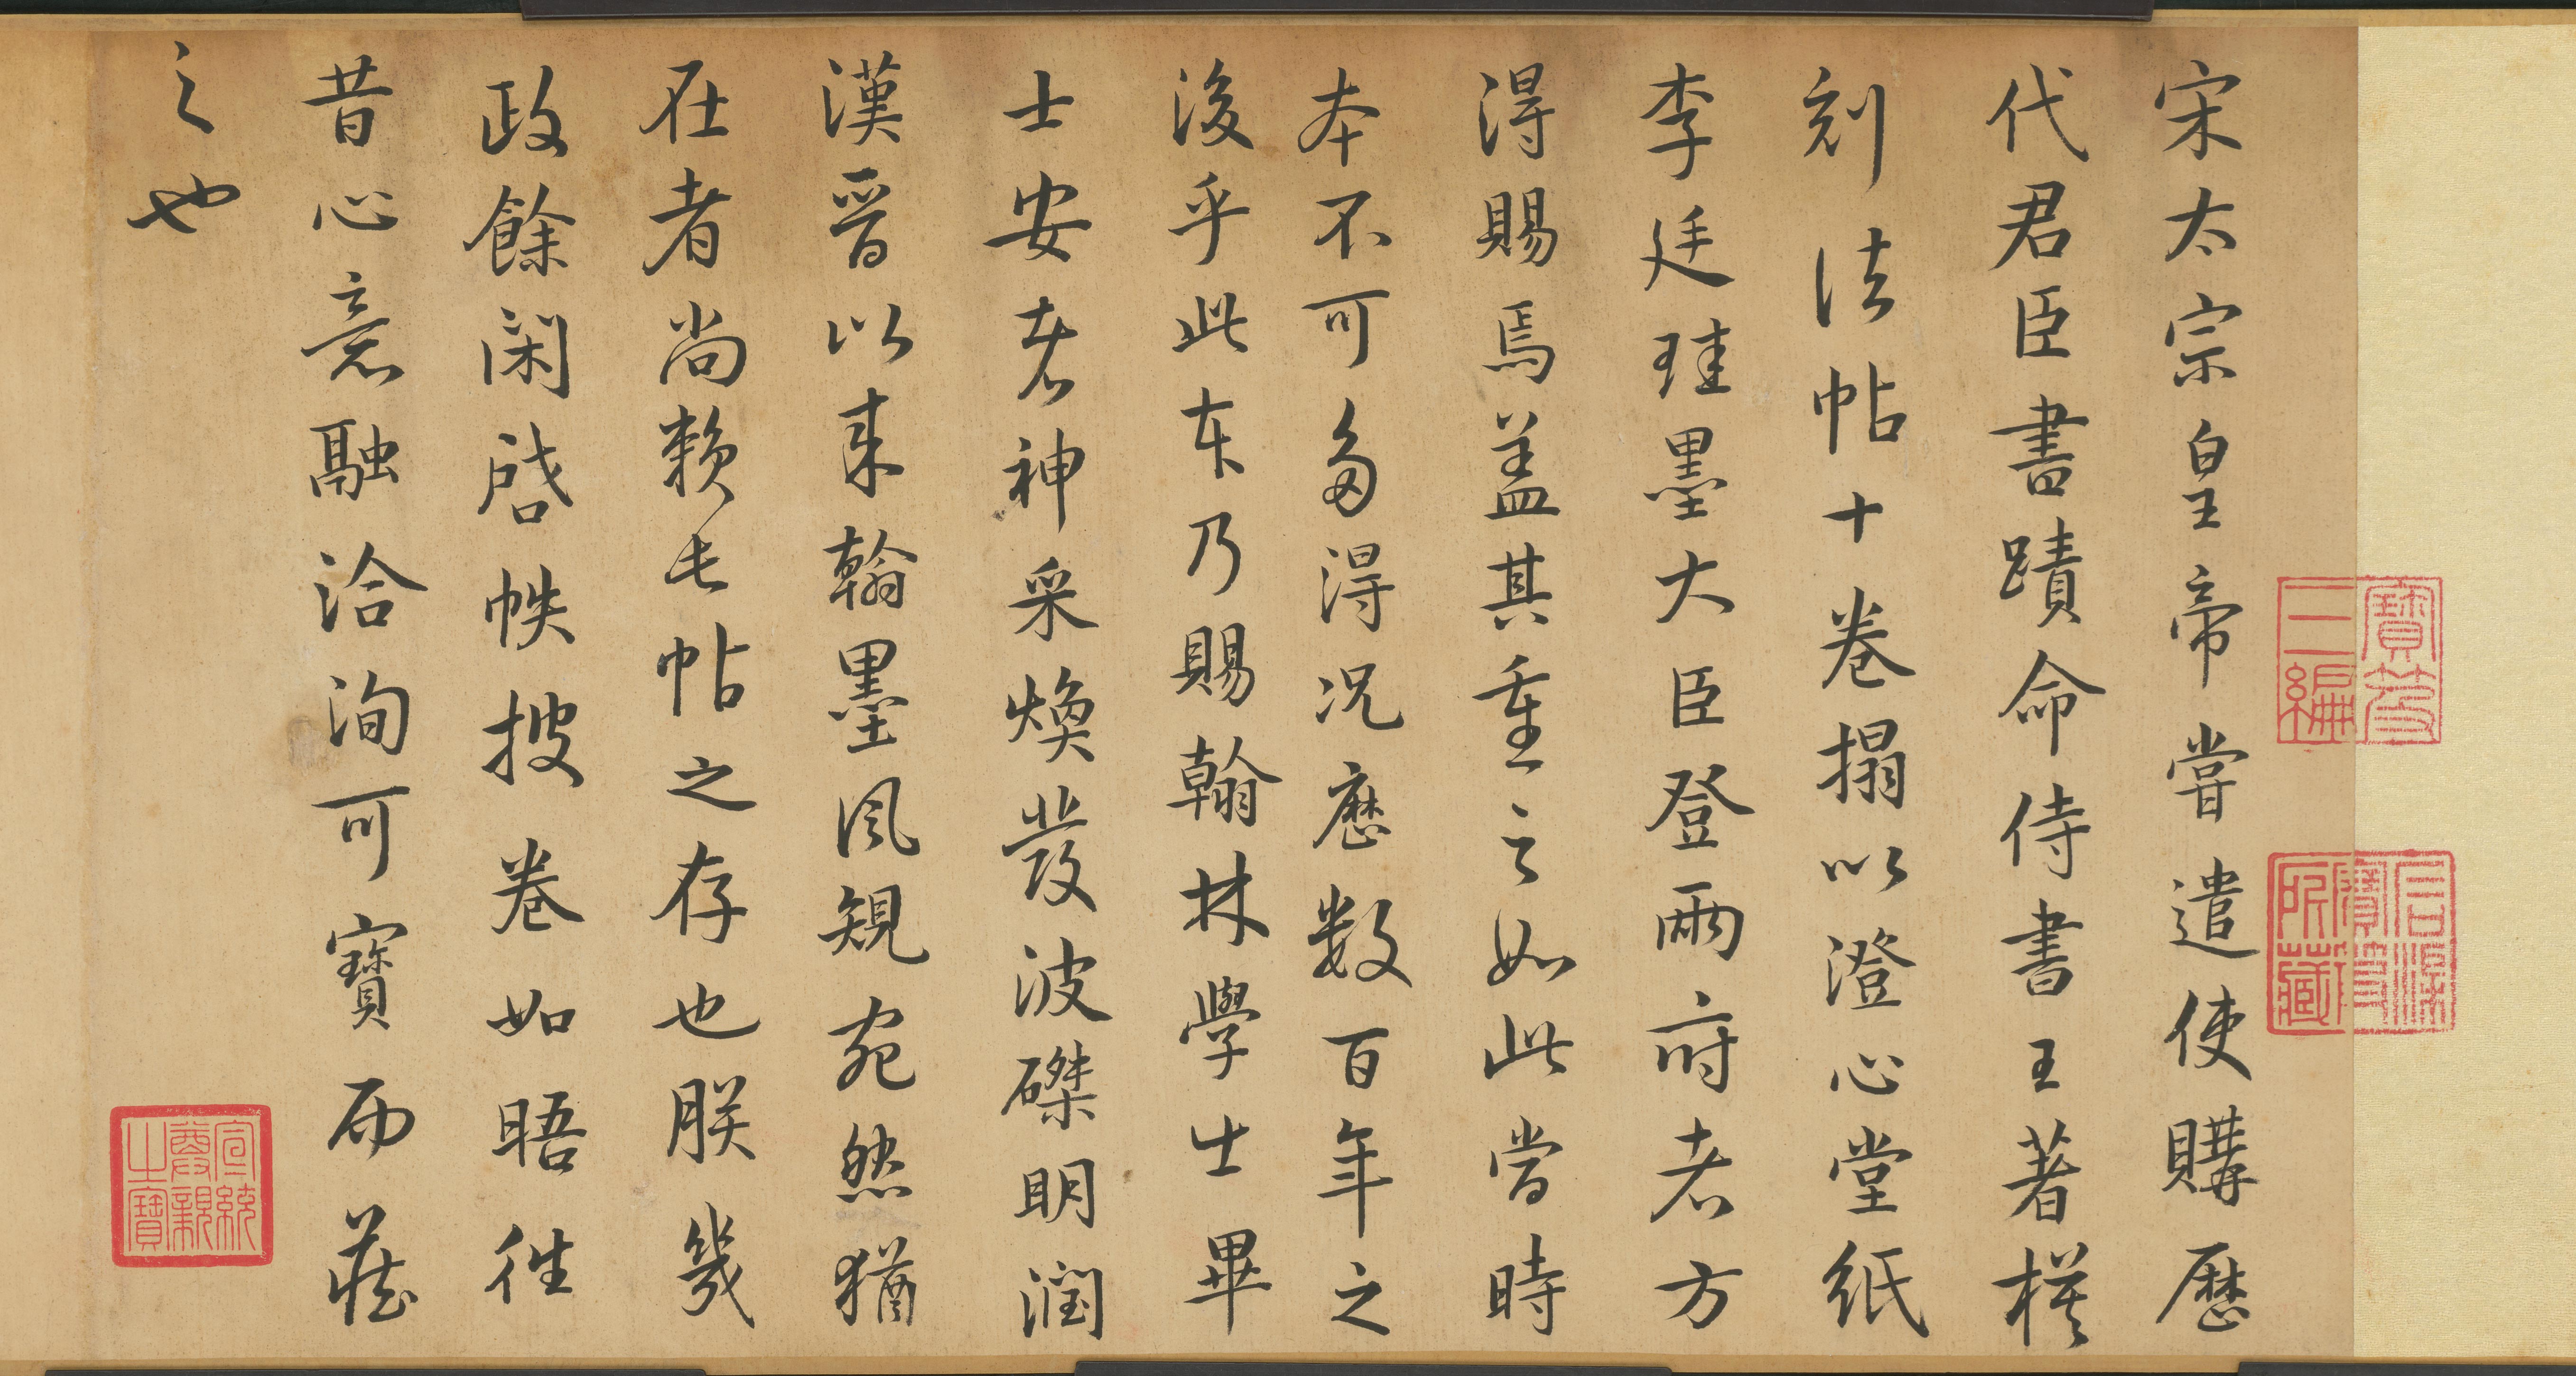 宋太宗皇帝嘗遣使購歷
代君臣書蹟命侍書王著模
刻法帖十卷搨以澄心堂紙
李廷珪墨大臣登兩府者方
得賜焉蓋其重之如此當時
本不可多得況歷數百年之
後乎此本乃賜翰林學士畢
士安者神采煥發波磔明潤
漢晉以來翰墨風規宛然猶
在者尚賴此帖之存也朕幾
政餘閑啓帙披卷如晤往
昔心意融洽洵可寶而藏
之也
寶笈
三編
宣統
尊親
之寶
所藏